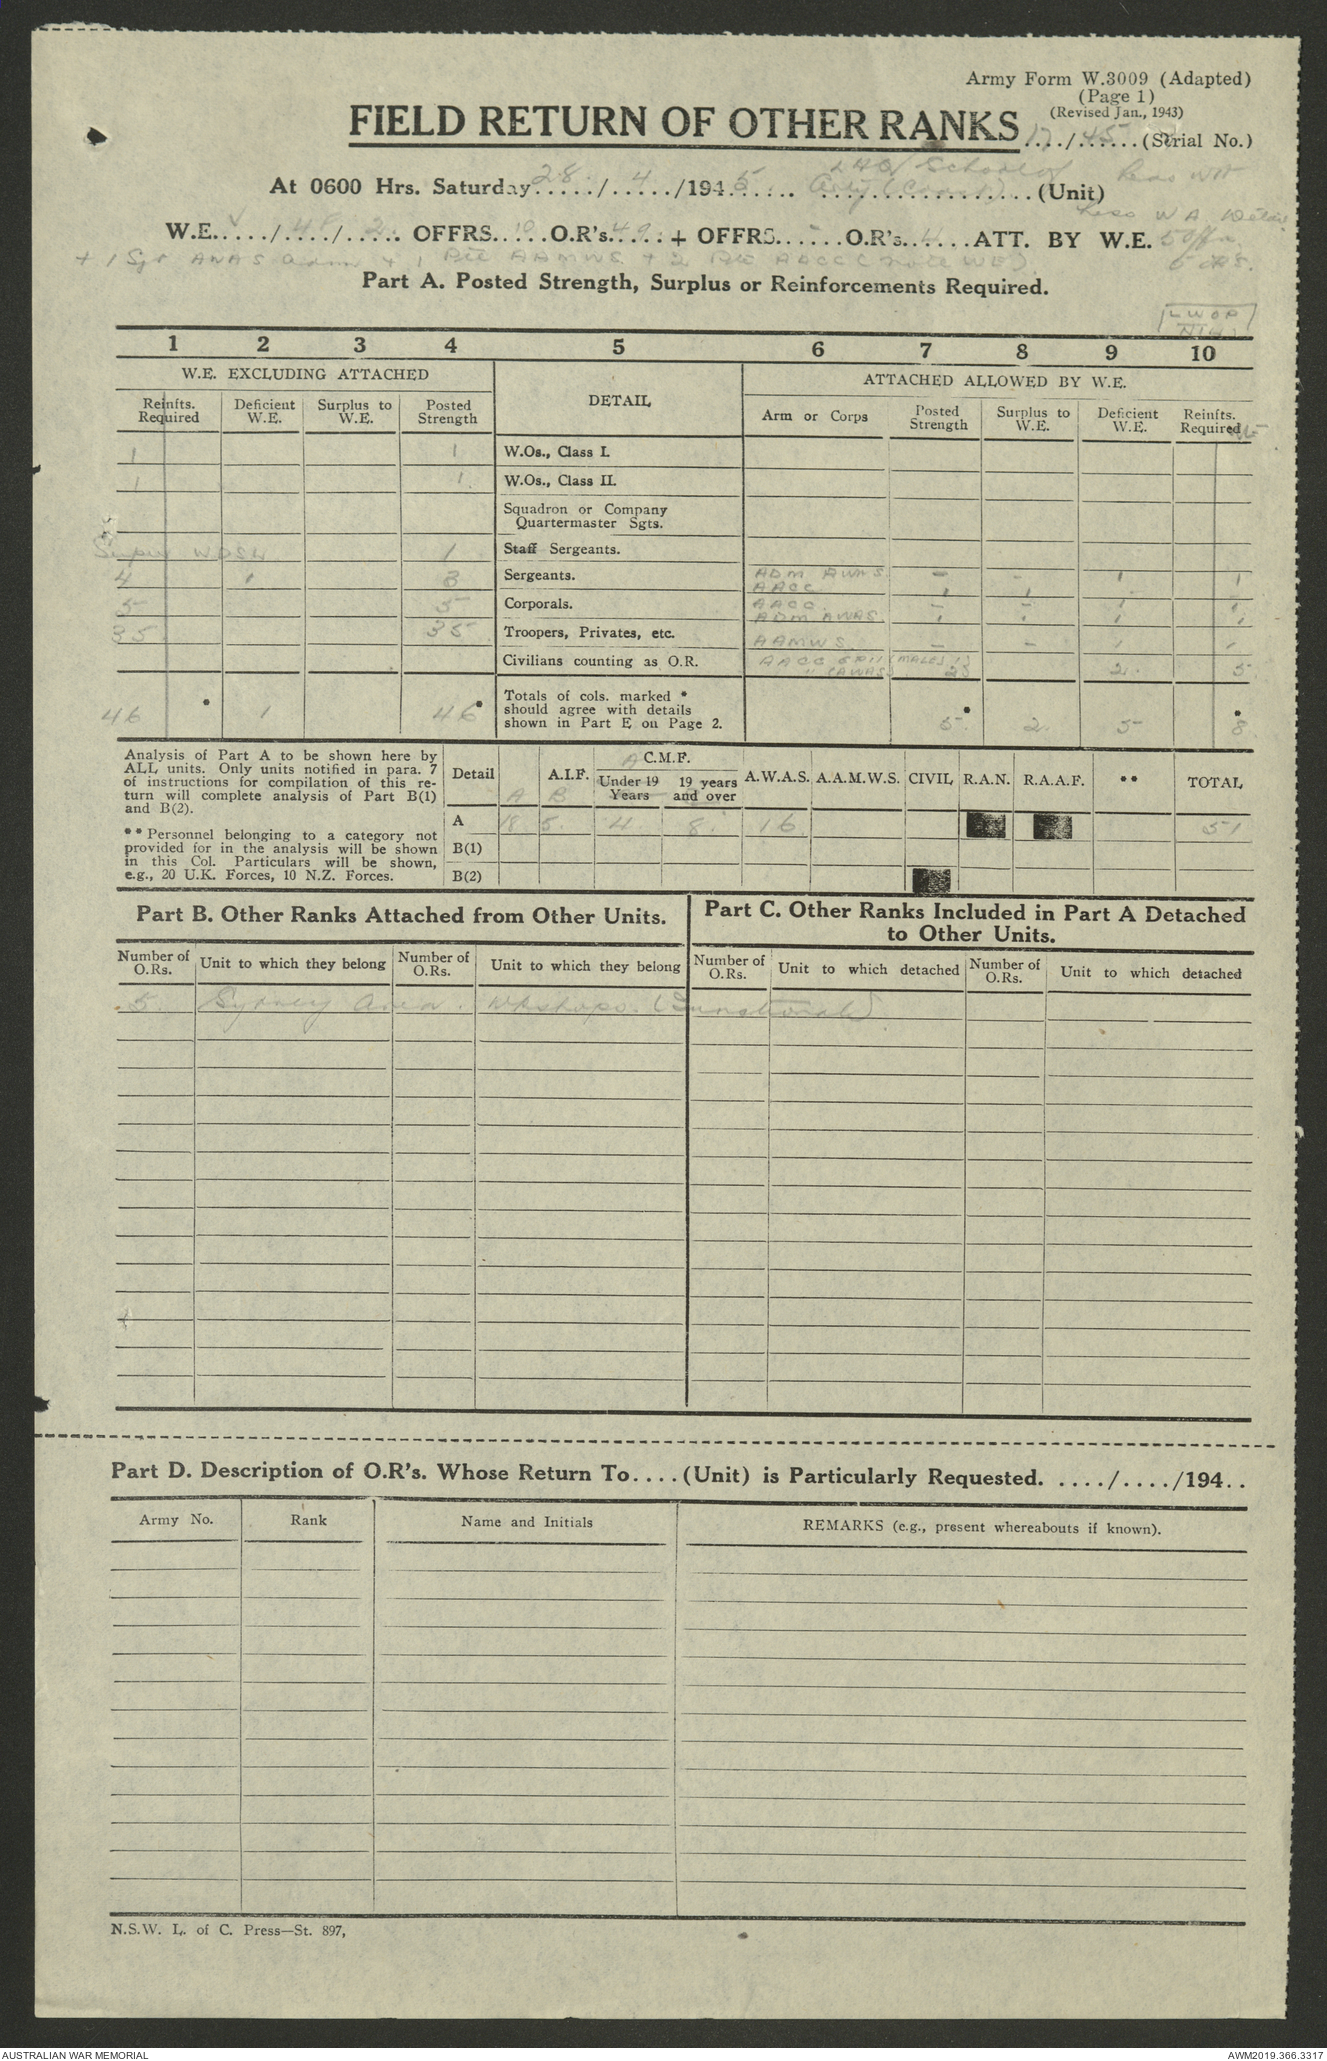 Army Form W.3009 (Adapted)
(Page 1)
(Revised Jan., 1943)
FIELD RETURN OF OTHER RANKS 17/45 (Serial No.)
At 0600 Hrs. Saturday 28/4/1945 LHQ School of Arty (Coast) (Unit)
Less WA Details
W.E. V/48/2 OFFRS. 10 O.R's. 49 + OFFRS. - O.R's. 4 ATT. BY W.E. 5 Offrs
+ 1 Sgt AWAS Adm + 1 Pte AAMWS + 2 Pte AACC (note WE) 5 ORs.
Part A. Posted Strength, Surplus or Reinforcements Required.
LWOP
1 2 3 4 5 6 7 8 9 10
W.E. EXCLUDING ATTACHED DETAIL ATTACHED ALLOWED BY W.E.
Reinfts. Required Deficient W.E. Surplus to W.E. Posted Strength Arm or Corps Posted Strength Surplus to W.E. Deficient W.E. Reinfts. Required
1 1 W.Os., Class I.
1 1 W.Os., Class II.
Squadron or Company
Quartermaster Sgts.
1 Staff Sergeants.
4 1 3 Sergeants. ADM AWAS - - 1 1
AACC 1 1
5 5 Corporals. AACC - - 1 1
ADM AWAS 1 1 1
35 35 Troopers, Privates, etc. AAMWS - - 1 1
Civilians counting as O.R. AACC GP II (MALES)
" (AWAS) 2 2 5
46 * 1 46 * Totals of cols. marked *
should agree with details
shown in Part E on Page 2. 5 * 2 5 8 *
Analysis of Part A to be shown here by
ALL units. Only units notified in para. 7
of instructions for compilation of this re-
turn will complete analysis of Part B(1)
and B(2).
** Personnel belonging to a category not
provided for in the analysis will be shown
in this Col. Particulars will be shown,
e.g., 20 U.K. Forces, 10 N.Z. Forces.
Detail A.I.F. C.M.F. A.W.A.S. A.A.M.W.S. CIVIL R.A.N. R.A.A.F. ** TOTAL
Under 19 Years 19 years and over
A B
A 18 5 4 8 16 51
B(1)
B(2)
Part B. Other Ranks Attached from Other Units.
Part C. Other Ranks Included in Part A Detached
to Other Units.
Number of O.Rs. Unit to which they belong Number of O.Rs. Unit to which they belong Number of O.Rs. Unit to which detached Number of O.Rs. Unit to which detached
5 Sydney Area Wkshops. (Functional)
Part D. Description of O.R's. Whose Return To....(Unit) is Particularly Requested. ..../..../194..
Army No. Rank Name and Initials REMARKS (e.g., present whereabouts if known).
N.S.W. L. of C. Press—St. 897,
AUSTRALIAN WAR MEMORIAL
AWM2019.366.3317